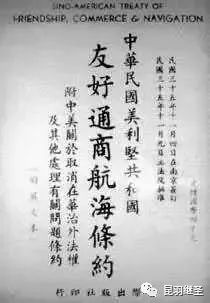 SINO-AMERICAN TREATY OF
FRIENDSHIP, COMMERCE & NAVIGATION
民國三十五年十一月四日在南京簽訂
民國三十五年十一月九日立法院批准
中華民國美利堅共和國
友好通商航海條約
附中美關於取消在華治外法權
及其他處理有關問題條約
際出版社印行
昆羽继圣